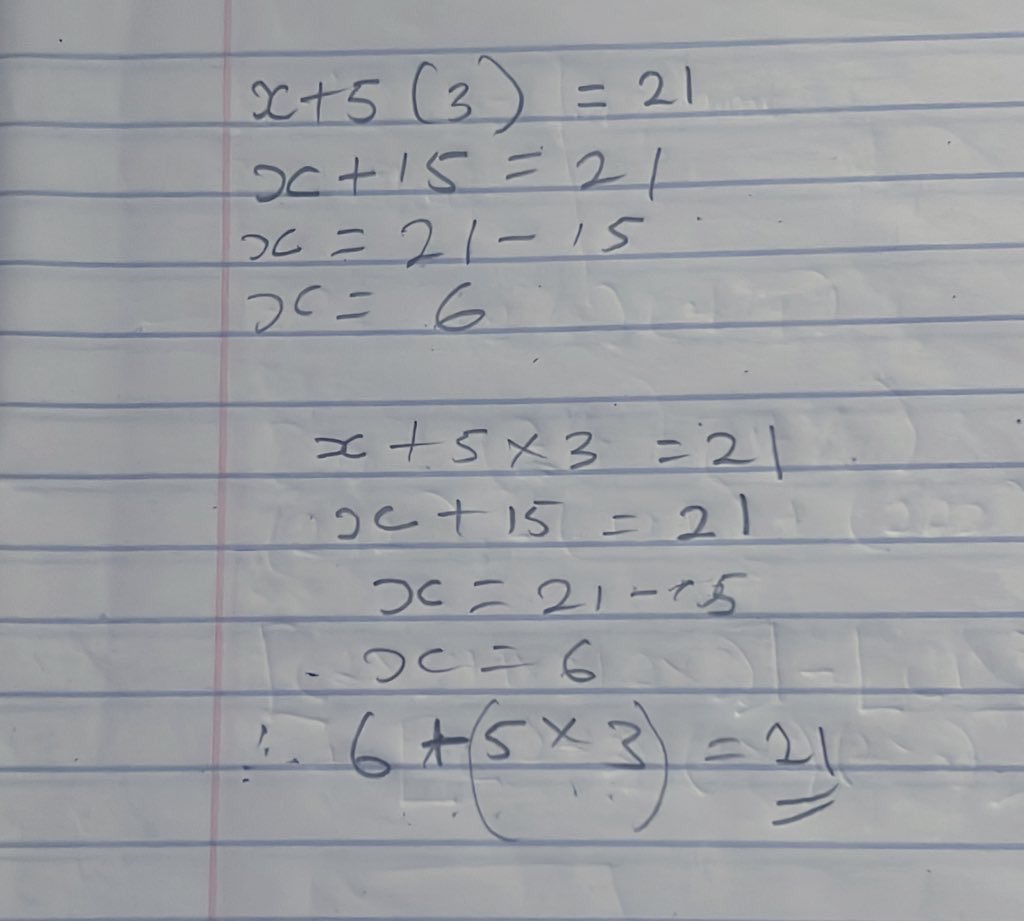 x+5(3) = 21
x+15 = 21
x = 21-15
x = 6
x+5×3 = 21
x+15 = 21
x = 21-15
x = 6
∴ 6+(5×3) = 21